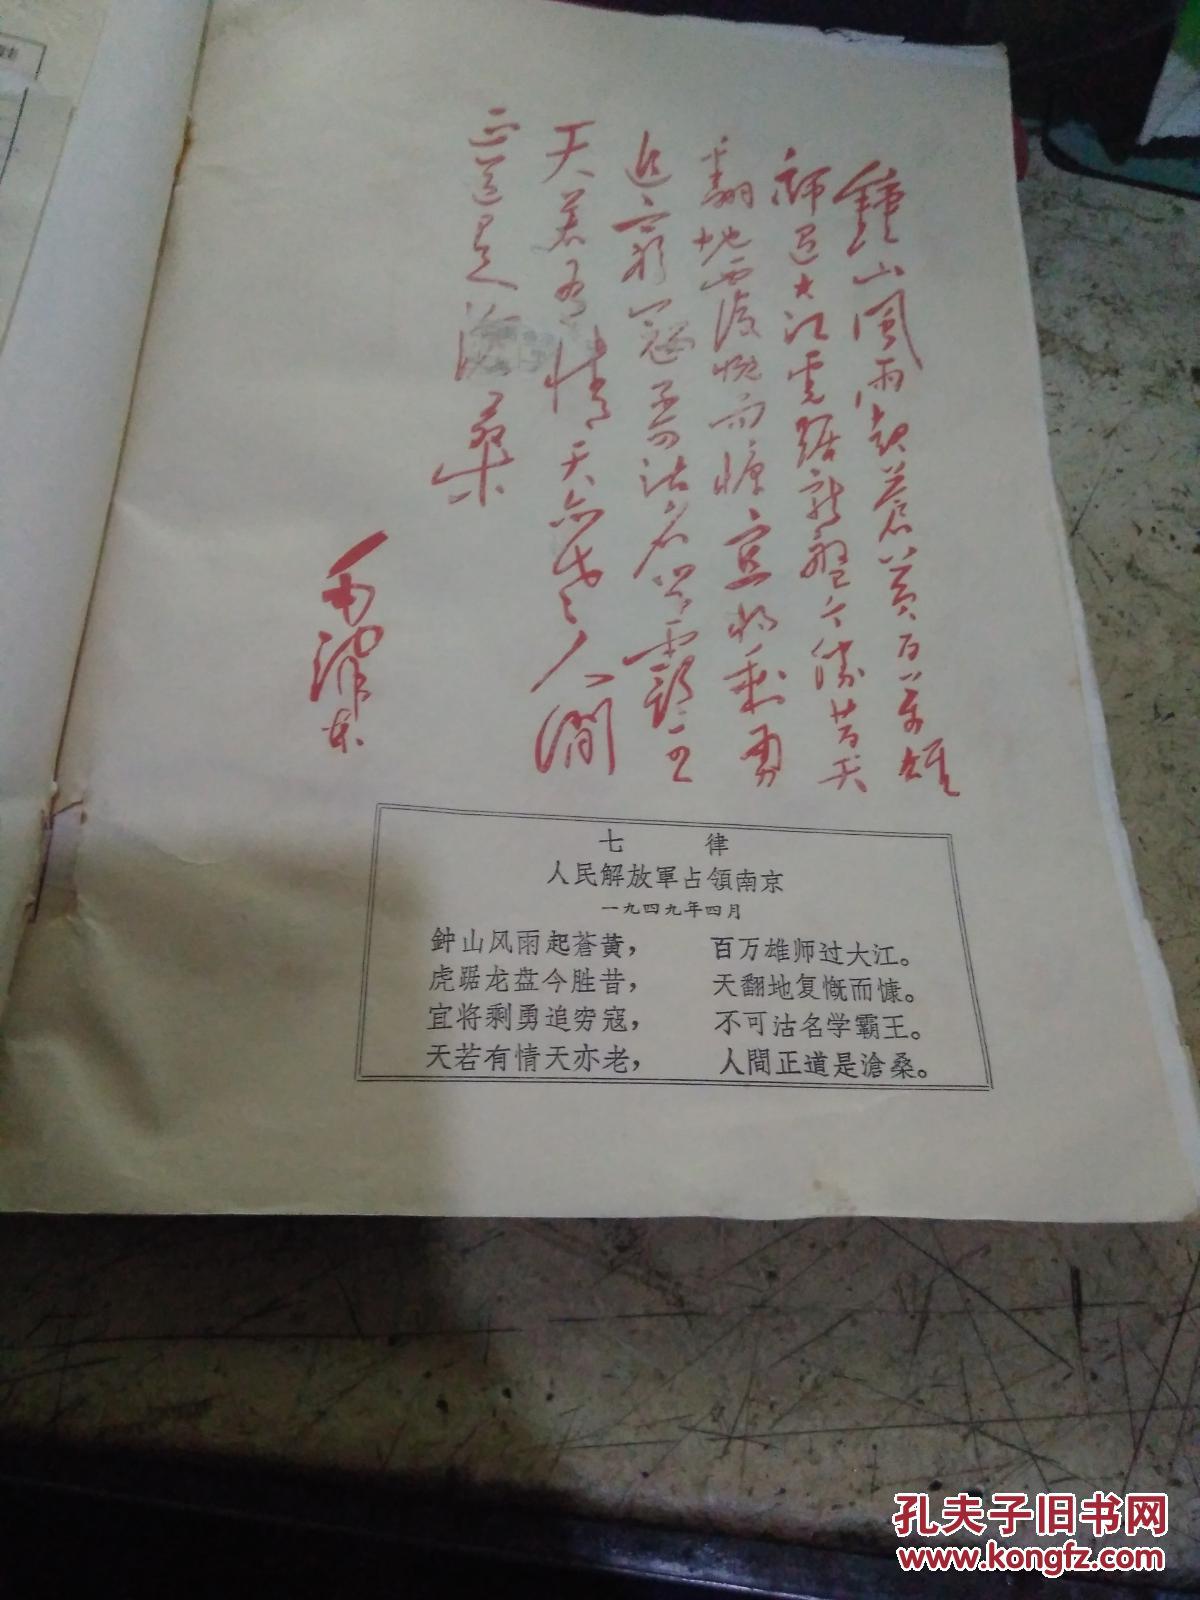 鍾山風雨起蒼黃百萬雄
師過大江虎踞龍盤今勝昔天
翻地覆慨而慷宜將剩勇
追窮寇不可沽名學霸王
天若有情天亦老人間
正道是滄桑
毛澤東
七 律
人民解放軍占領南京
一九四九年四月
鈡山风雨起蒼黃， 百万雄师过大江。
虎踞龙盘今胜昔， 天翻地复慨而慷。
宜将剩勇追穷寇， 不可沽名学霸王。
天若有情天亦老， 人間正道是滄桑。
孔夫子旧书网
www.kongfz.com